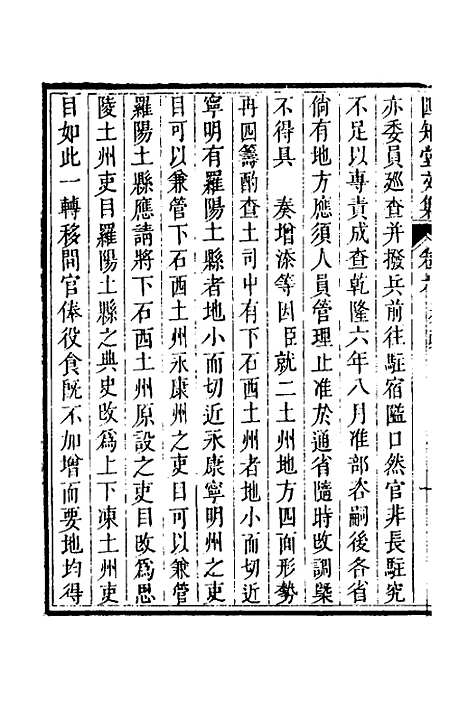 四知堂文集
亦委員廵查并撥兵前往駐宿隘口然官非長駐究
不足以專責成查乾隆六年八月准部咨嗣後各省
倘有地方應須人員管理止准於通省隨時改調槩
不得具　奏增添等因臣就二土州地方四面形勢
再四籌酌查土司中有下石西土州者地小而切近
寧明有羅陽土縣者地小而切近永康寧明州之吏
目可以兼管下石西土州永康州之吏目可以兼管
羅陽土縣應請將下石西土州原設之吏目改爲思
陵土州吏目羅陽土縣之典史改爲上下凍土州吏
目如此一轉移間官俸役食旣不加增而要地均得